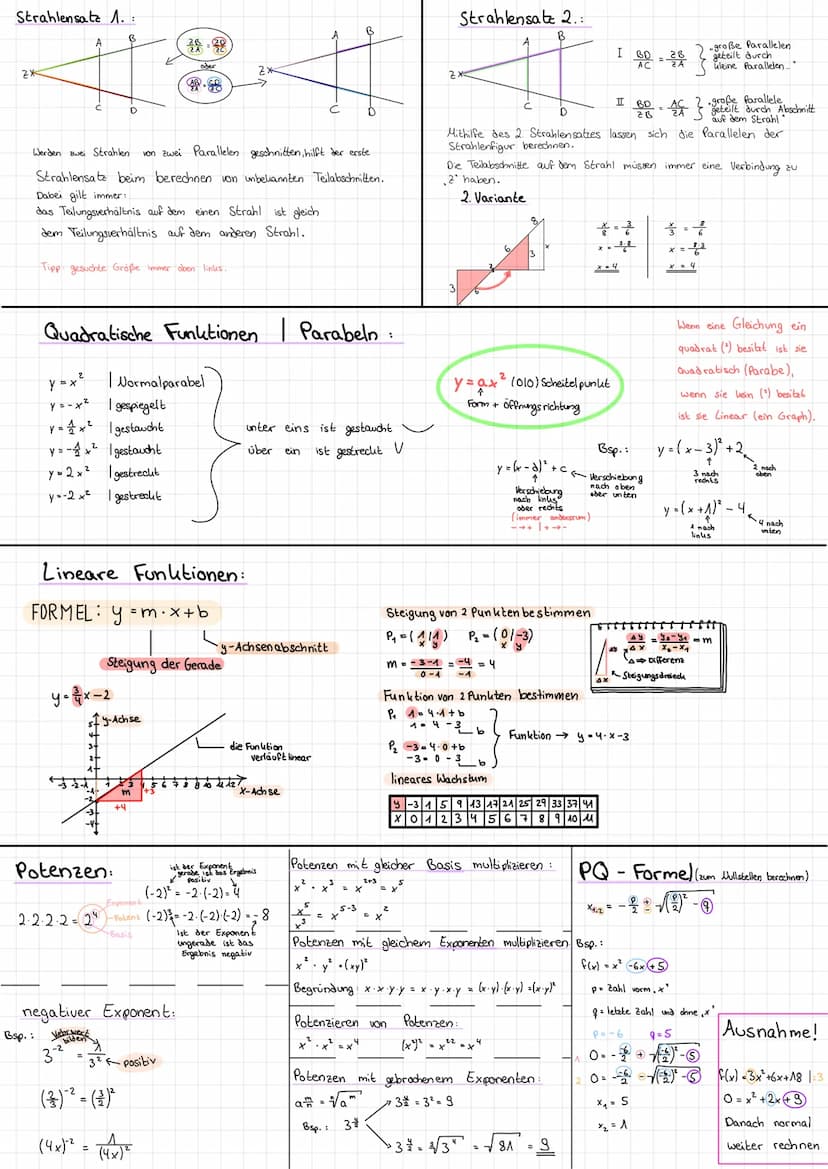 Strahlensatz 1.:
A B
Z C D
ZB/ZA = ZD/ZC
oder
AB/ZA = CD/ZC
A B
Z C D
Werden zwei Strahlen von zwei Parallelen geschnitten, hilft der erste
Strahlensatz beim berechnen von unbekannten Teilabschnitten.
Dabei gilt immer:
das Teilungsverhältnis auf dem einen Strahl ist gleich
dem Teilungsverhältnis auf dem anderen Strahl.
Tipp: gesuchte Größe immer oben links.
Strahlensatz 2.:
A B
Z C D
I BD/AC = ZB/ZA } "große Parallelen
geteilt durch
kleine Parallelen."
II BD/ZB = AC/ZA } "große Parallele
geteilt durch Abschnitt
auf dem Strahl"
Mithilfe des 2. Strahlensatzes lassen sich die Parallelen der
Strahlenfigur berechnen.
Die Teilabschnitte auf dem Strahl müssen immer eine Verbindung zu
"Z" haben.
2. Variante
8 6 3 x
3 6
x/8 = 3/6
x = 3·8/6
x = 4
x/3 = 8/6
x = 8·3/6
x = 4
Quadratische Funktionen | Parabeln:
y = x² | Normalparabel
y = -x² | gespiegelt
y = ½ x² | gestaucht
y = -½ x² | gestaucht
y = 2x² | gestreckt
y = -2x² | gestreckt
unter eins ist gestaucht
über ein ist gestreckt
y = ax² (0|0) Scheitelpunkt
Form + Öffnungsrichtung
y = (x - d)² + c
Verschiebung
nach links
oder rechts
(immer andersrum)
- → + | + → -
Verschiebung
nach oben
oder unten
Wenn eine Gleichung ein
quadrat (²) besitzt ist sie
Quadratisch (Parabe),
wenn sie kein (²) besitzt
ist sie Linear (ein Graph).
Bsp.: y = (x - 3)² + 2
3 nach
rechts
2 nach
oben
y = (x + 1)² - 4
1 nach
links
4 nach
unten
Lineare Funktionen:
FORMEL: y = m · x + b
y-Achsenabschnitt
Steigung der Gerade
y = 3/4 x - 2
y-Achse
die Funktion
verläuft linear
x-Achse
-3 -2 -1 1 2 3 4 5 6 7 8 9 10 11 12
m +3
+4
Steigung von 2 Punkten bestimmen
P₁ = (1|1) P₂ = (0|-3)
x y x y
m = -3-1/0-1 = -4/-1 = 4
Funktion von 2 Punkten bestimmen
P₁ 1 = 4·1+b
1 = 4 - 3
b
P₂ -3 = 4·0+b
-3 = 0 - 3
b
Funktion → y = 4·x-3
Δy/Δx = y₂-y₁/x₂-x₁ = m
Δ ⇒ Differenz
Steigungsdreieck
Δx
lineares Wachstum
y -3 1 5 9 13 17 21 25 29 33 37 41
x 0 1 2 3 4 5 6 7 8 9 10 11
Potenzen:
ist der Exponent
gerade ist das Ergebnis
positiv
(-2)² = -2·(-2) = 4
2·2·2·2 = 2⁴
Exponent
Potenz
Basis
(-2)³ = -2·(-2)·(-2) = -8
ist der Exponent
ungerade ist das
Ergebnis negativ
negativer Exponent:
Bsp.: Kehrwert
bilden
3⁻² = 1/3² ← positiv
(2/3)⁻² = (3/2)²
(4x)⁻² = 1/(4x)²
Potenzen mit gleicher Basis multiplizieren:
x² · x³ = x²⁺³ = x⁵
x⁵/x³ = x⁵⁻³ = x²
Potenzen mit gleichem Exponenten multiplizieren
x² · y² = (xy)²
Begründung: x·x·y·y = x·y·x·y = (x·y)·(x·y) = (x·y)²
Potenzieren von Potenzen:
x² · x² = x⁴ (x²)² = x²·² = x⁴
Potenzen mit gebrochenem Exponenten:
a^m/n = ⁿ√a^m
Bsp.: 3^4/2
3^4/2 = 3² = 9
3^4/2 = ²√3⁴ = √81 = 9
PQ - Formel (zum Nullstellen berechnen)
x₁,₂ = -p/2 ± √(p/2)² - q
Bsp.:
f(x) = x² -6x +5
p = Zahl vorm "x"
q = letzte Zahl und ohne "x"
p = -6 q = 5
1 0 = - -6/2 + √(-6/2)² - 5
2 0 = - -6/2 - √(-6/2)² - 5
x₁ = 5
x₂ = 1
Ausnahme!
f(x) = 3x²+6x+18 | :3
0 = x² + 2x + 9
Danach normal
weiter rechnen